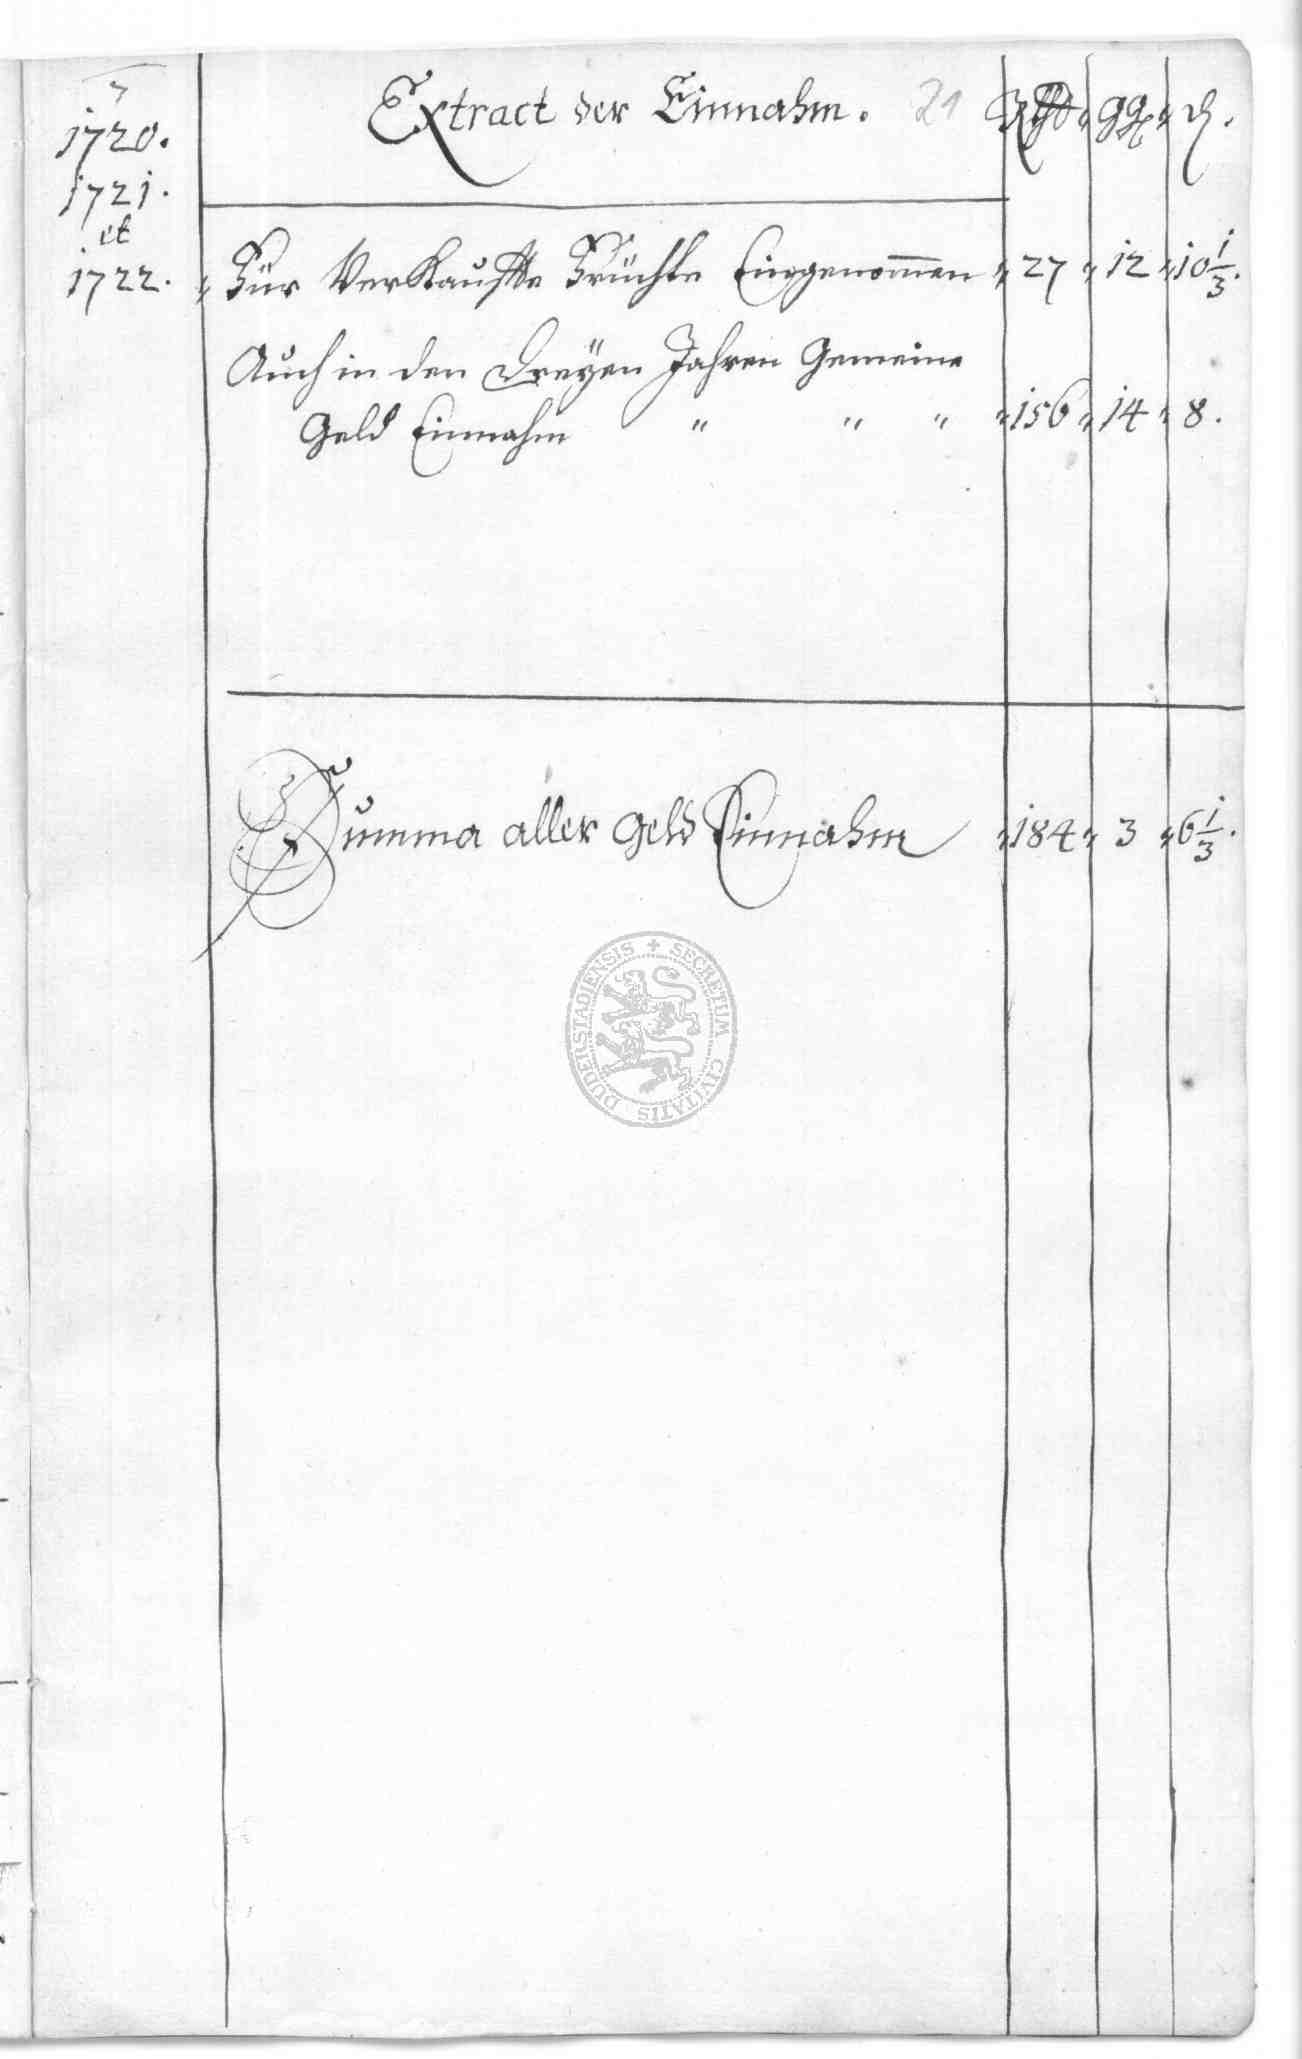 Extract der Einnahm. 21 Rthl gg ₰.
1720.
1721.
et
1722.
Für Verkauffte Früchte Eingenom̄en " 27 " 12 " 10 1/3.
Auch in den Dreyen Jahren Gemeine
Geld Einnahm " " " " 156 " 14 " 8.
Summa aller Geld Einnahm " 184 " 3 " 6 1/3.
SECRETUM CIVITATIS DUDERSTADIENSIS